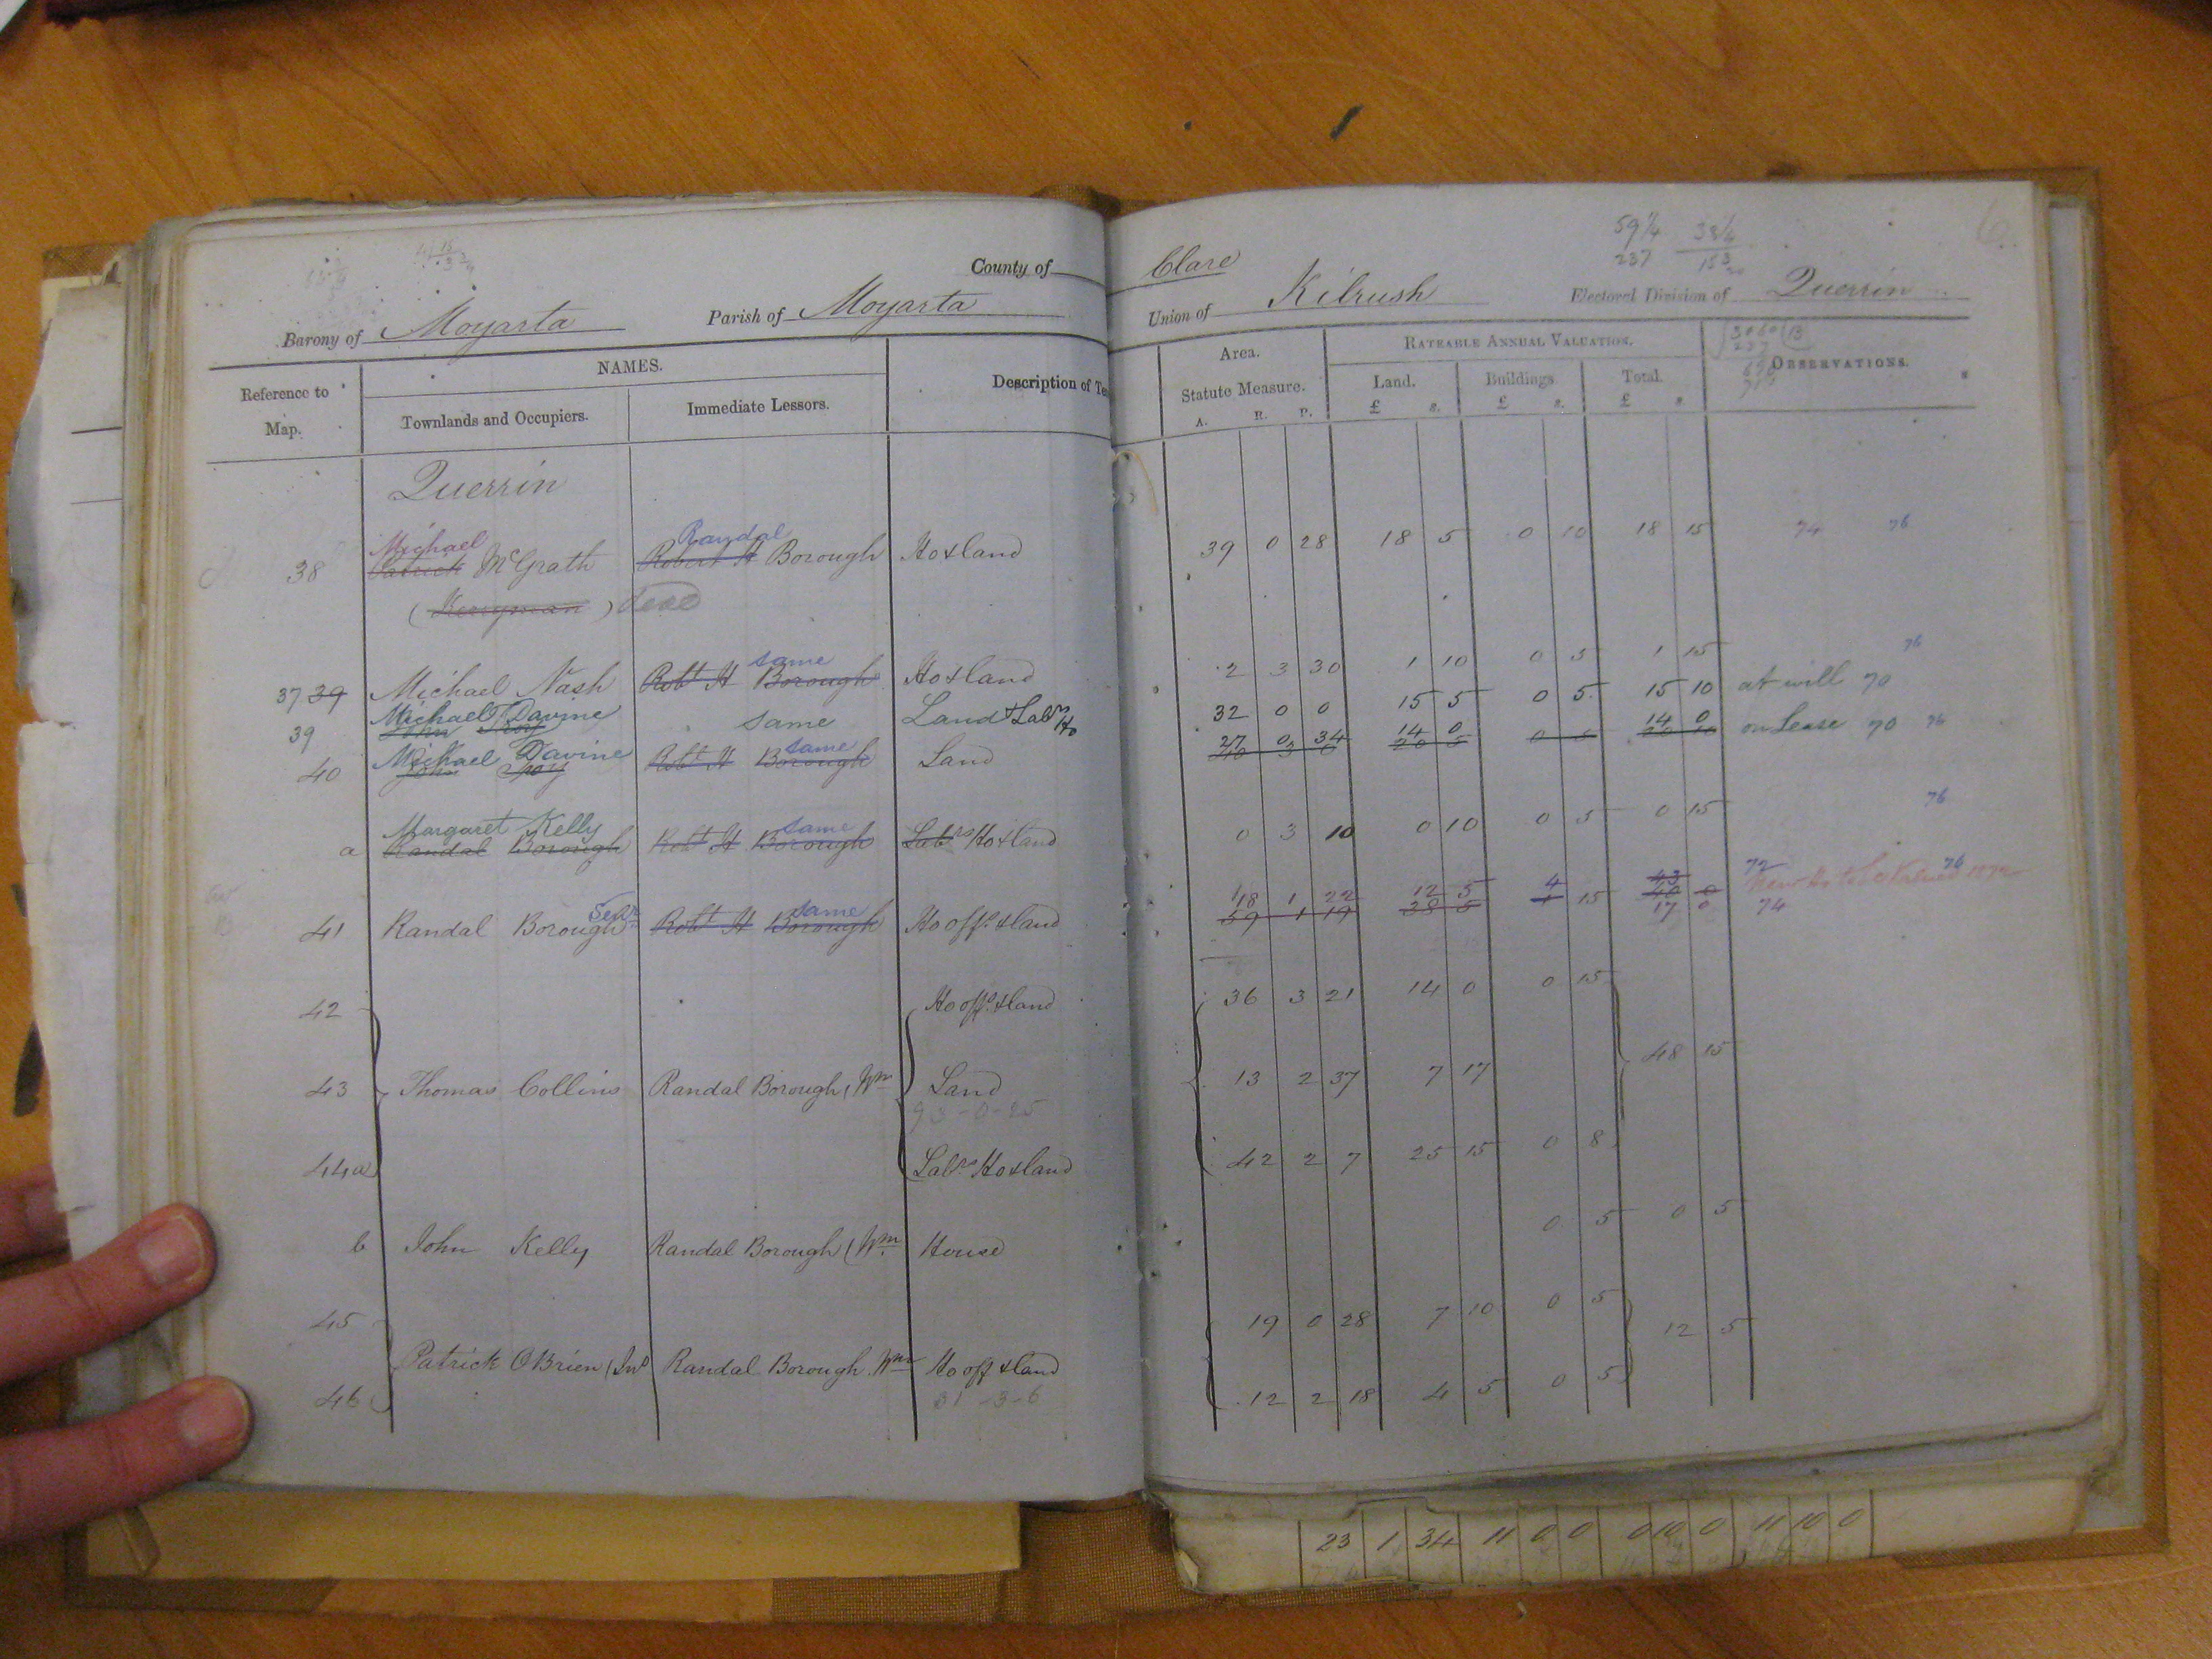 15
59¼ 38¼
237 153
County of Clare
Barony of Moyarta Parish of Moyarta Union of Kilrush Electoral Division of Querrin
Reference to Map. NAMES. Description of Te Area. RATEABLE ANNUAL VALUATION. OBSERVATIONS.
Townlands and Occupiers. Immediate Lessors. Statute Measure. Land. Buildings Total.
A. R. P. £ s. £ s. £ s
Querrin
Michael Randal
38 Patrick McGrath Robert H Borough Ho & land 39 0 28 18 5 0 10 18 15 74 76
(Kerryman) dead
same 76
37 39 Michael Nash Robt H Borough Ho & land 2 3 30 1 10 0 5 1 15
Michael Davine
39 John same Land & Labrs Ho 32 0 0 15 5 0 5 15 10 at will 70
Michael Davine same 27 0 34 14 0 14 0 on Lease 70 76
40 John Robt H Borough Land
Margaret Kelly same 76
a Randal Borough Robt H Borough Labrs Ho & land 0 3 10 0 10 0 5 0 15
Senr same 18 1 22 12 5 4 43 72 76
41 Randal Borough Robt H Borough Ho offs & land 59 1 19 38 5 15 40 0
17 0 74
42 Ho offs & land 36 3 21 14 0 0 15
43 Thomas Collins Randal Borough (Wm Land 13 2 37 7 17 48 15
93-0-25
44a Labrs Ho & land 42 2 7 25 15 0 8
b John Kelly Randal Borough (Wm House 0 5 0 5
45 19 0 28 7 10 0 5
Patrick OBrien (Jno Randal Borough Wm Ho off & land 12 5
46 31-3-6 12 2 18 4 5 0 5
23 1 34 11 0 0 0 10 0 11 10 0